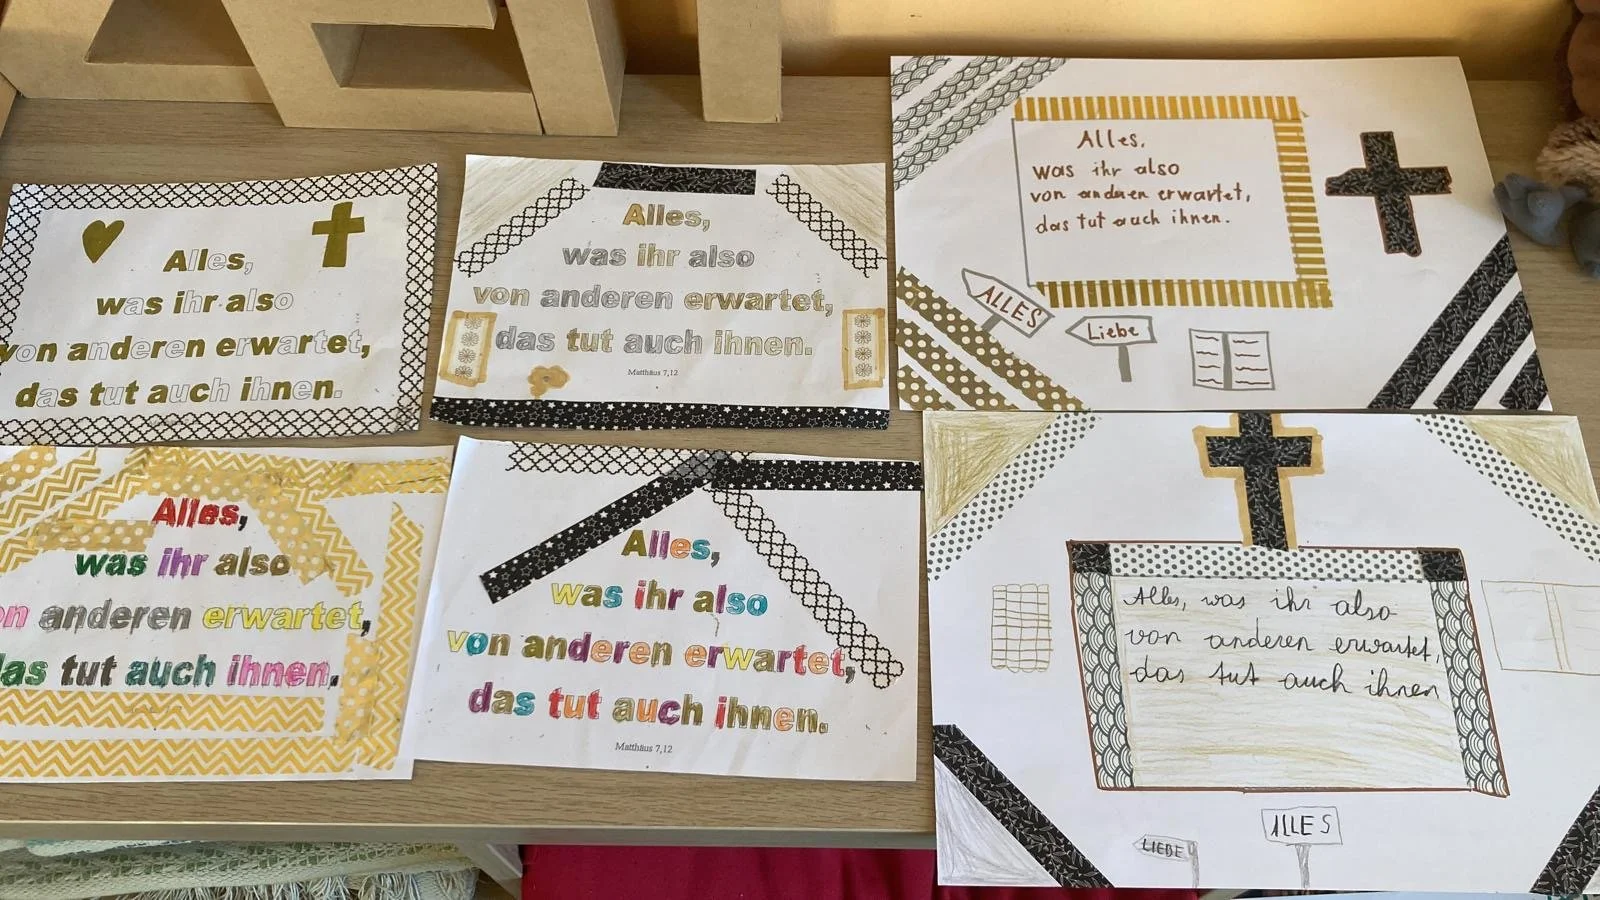 Alles,
was ihr also
von anderen erwartet,
das tut auch ihnen.
Alles,
was ihr also
von anderen erwartet,
das tut auch ihnen.
Matthäus 7,12
Alles,
was ihr also
von anderen erwartet,
das tut auch ihnen.
ALLES
Liebe
Alles,
was ihr also
on anderen erwartet,
das tut auch ihnen.
Alles,
was ihr also
von anderen erwartet,
das tut auch ihnen.
Matthäus 7,12
Alles, was ihr also
von anderen erwartet,
das tut auch ihnen
ALLES
LIEBE